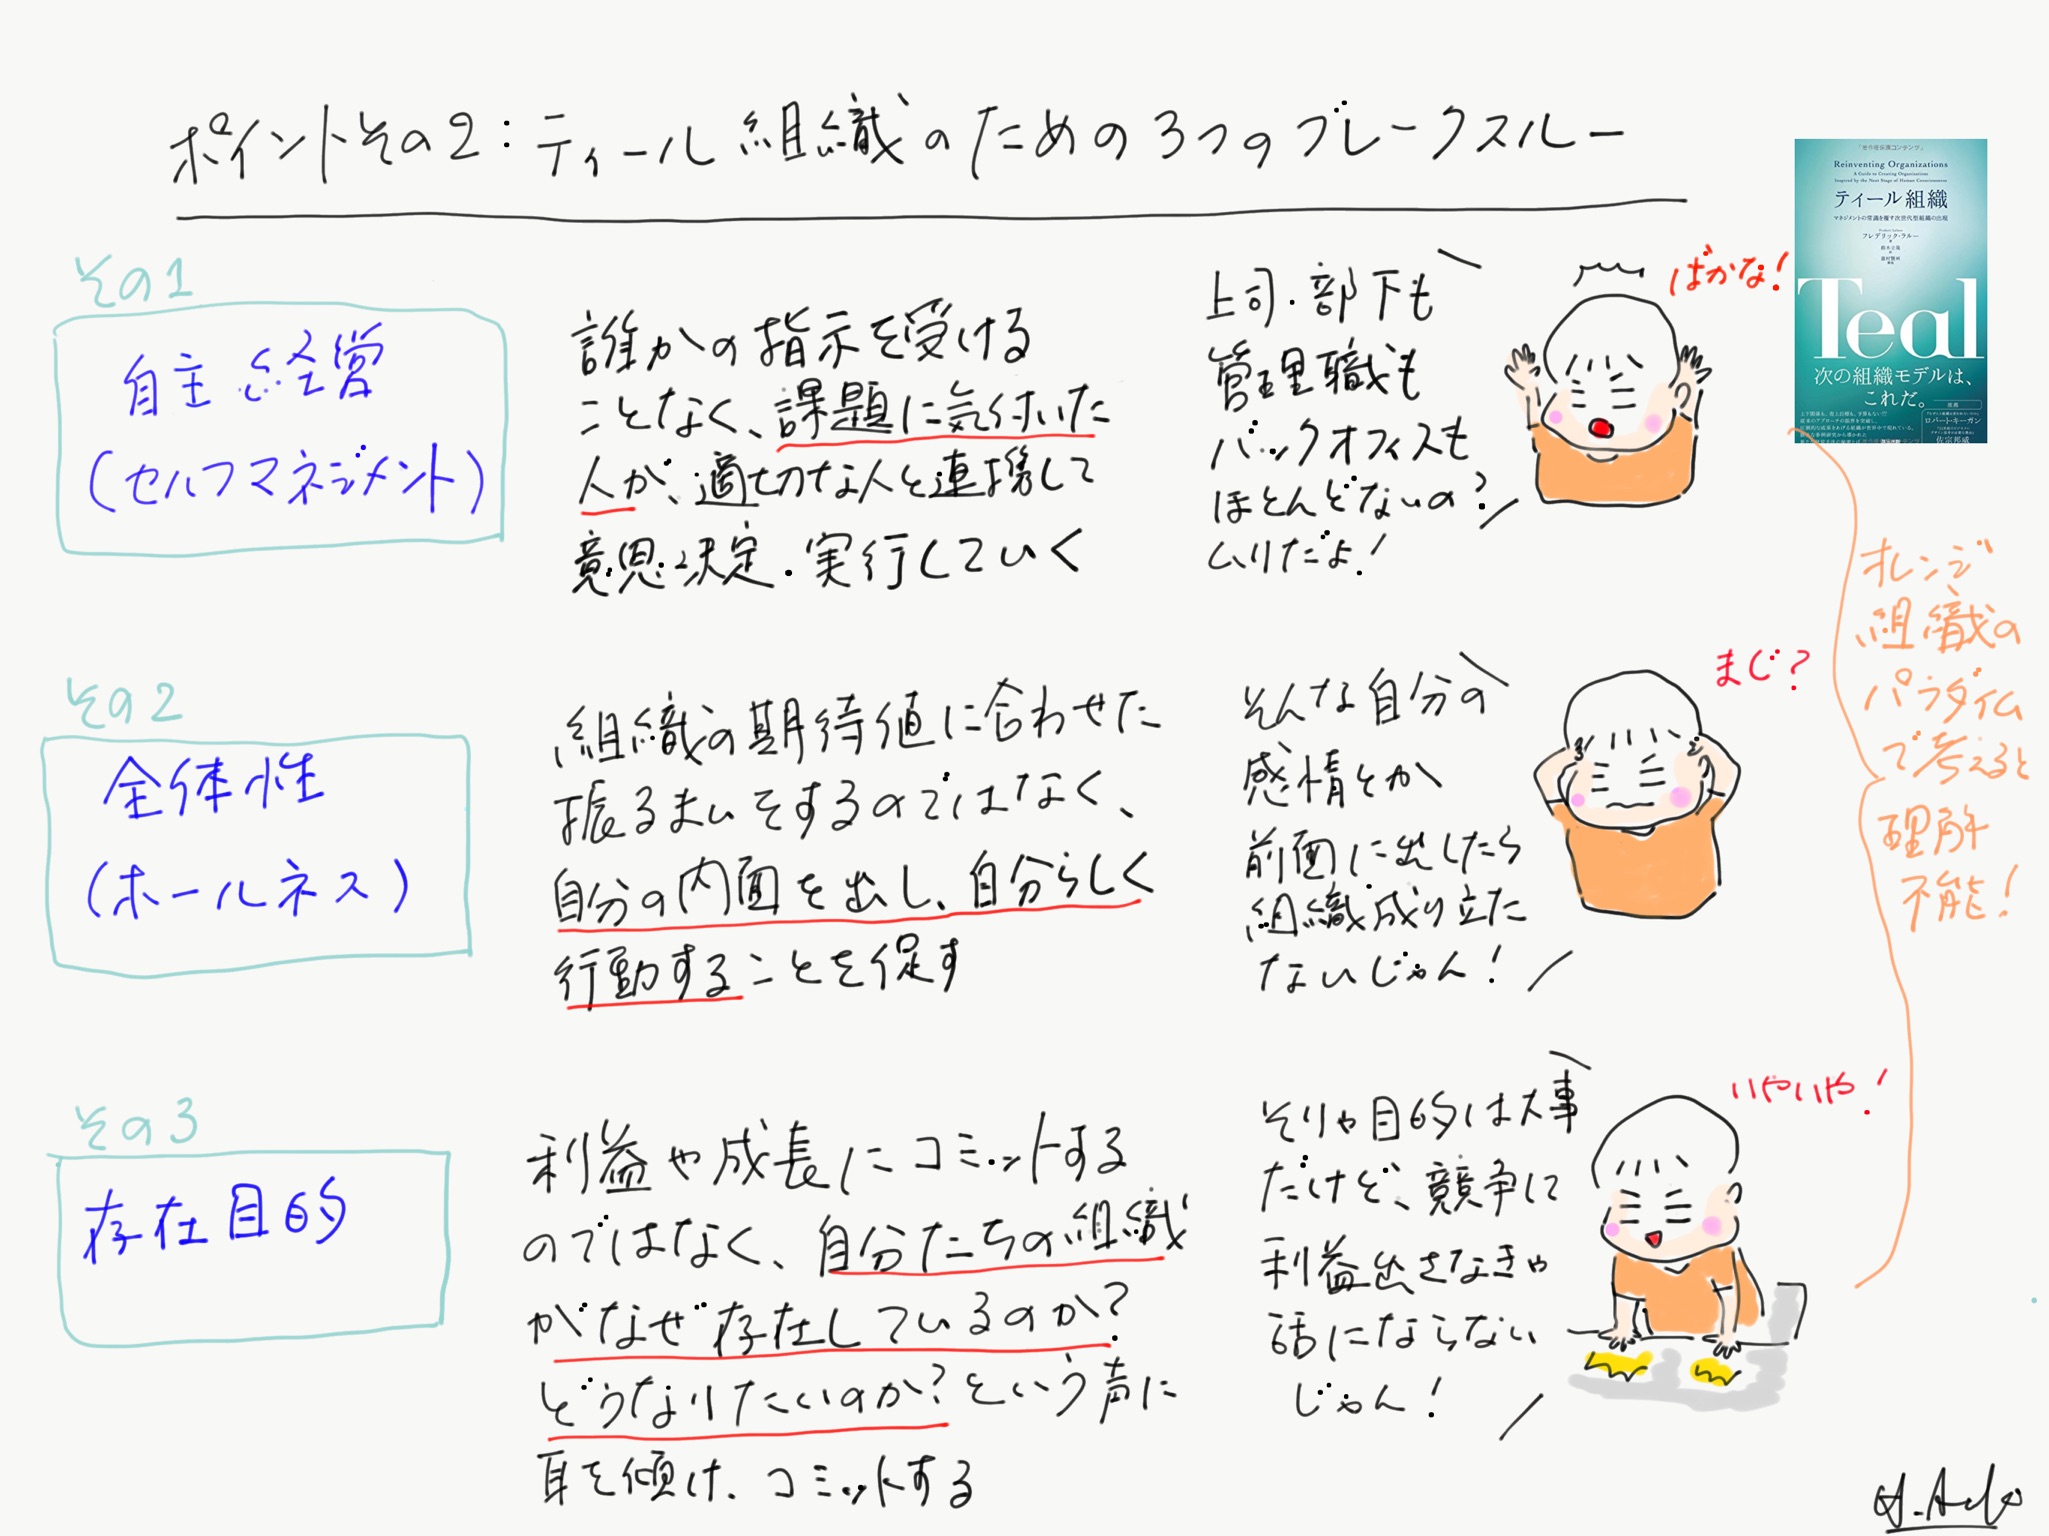 ポイントその2：ティール組織のための3つのブレークスルー
その1
自主経営
（セルフマネジメント）
誰かの指示を受ける
ことなく、課題に気付いた
人が、適切な人と連携して
意思決定・実行していく
上司・部下も
管理職も
バックオフィスも
ほとんどないの？
ムリだよ！
ばかな！
その2
全体性
（ホールネス）
組織の期待値に合わせた
振るまいをするのではなく、
自分の内面を出し、自分らしく
行動することを促す
そんな自分の
感情とか
前面に出したら
組織成り立た
ないじゃん！
まじ？
その3
存在目的
利益や成長にコミットする
のではなく、自分たちの組織
がなぜ存在しているのか？
どうなりたいのか？という声に
耳を傾け、コミットする
そりゃ目的は大事
だけど、競争して
利益出さなきゃ
話にならない
じゃん！
いやいや！
オレンジ
組織の
パラダイム
で考えると
理解
不能！
「著作権保護コンテンツ」
Reinventing Organizations
A Guide to Creating Organizations
Inspired by the Next Stage of Human Consciousness
ティール組織
マネジメントの常識を覆す次世代型組織の出現
フレデリック・ラルー
Teal
次の組織モデルは、
これだ。
ロバート・キーガン
佐宗邦威